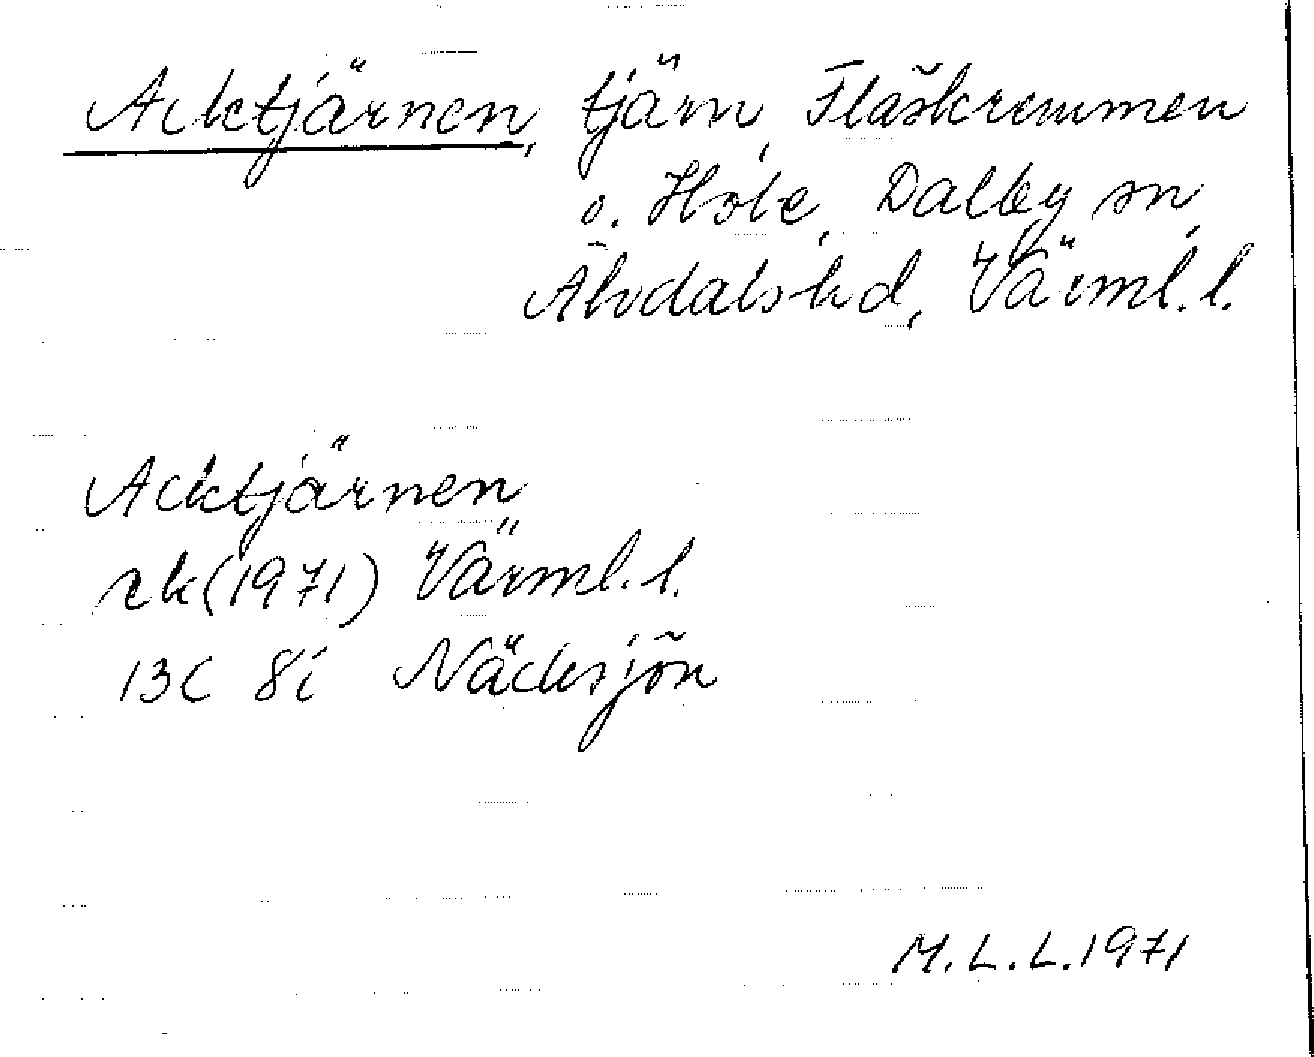 Acktjärnen, tjärn, Fläskremmen
o. Hole, Dalby sn,
Älvdals hd, Värml. l.
Acktjärnen
rk (1971) Värml. l.
13C 8i Näcksjön
M. L. L. 1971